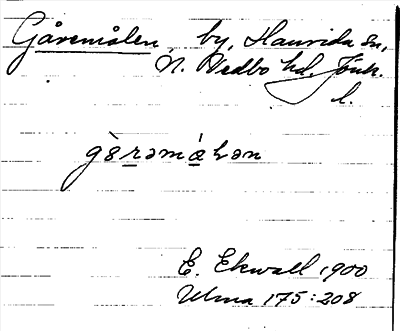 Gåremålen, by, Haurida sn,
N. Vedbo hd. Jönk.
l.
gɜ̀rəmɑ́lən
E. Ekwall 1900
Ulma 175:208